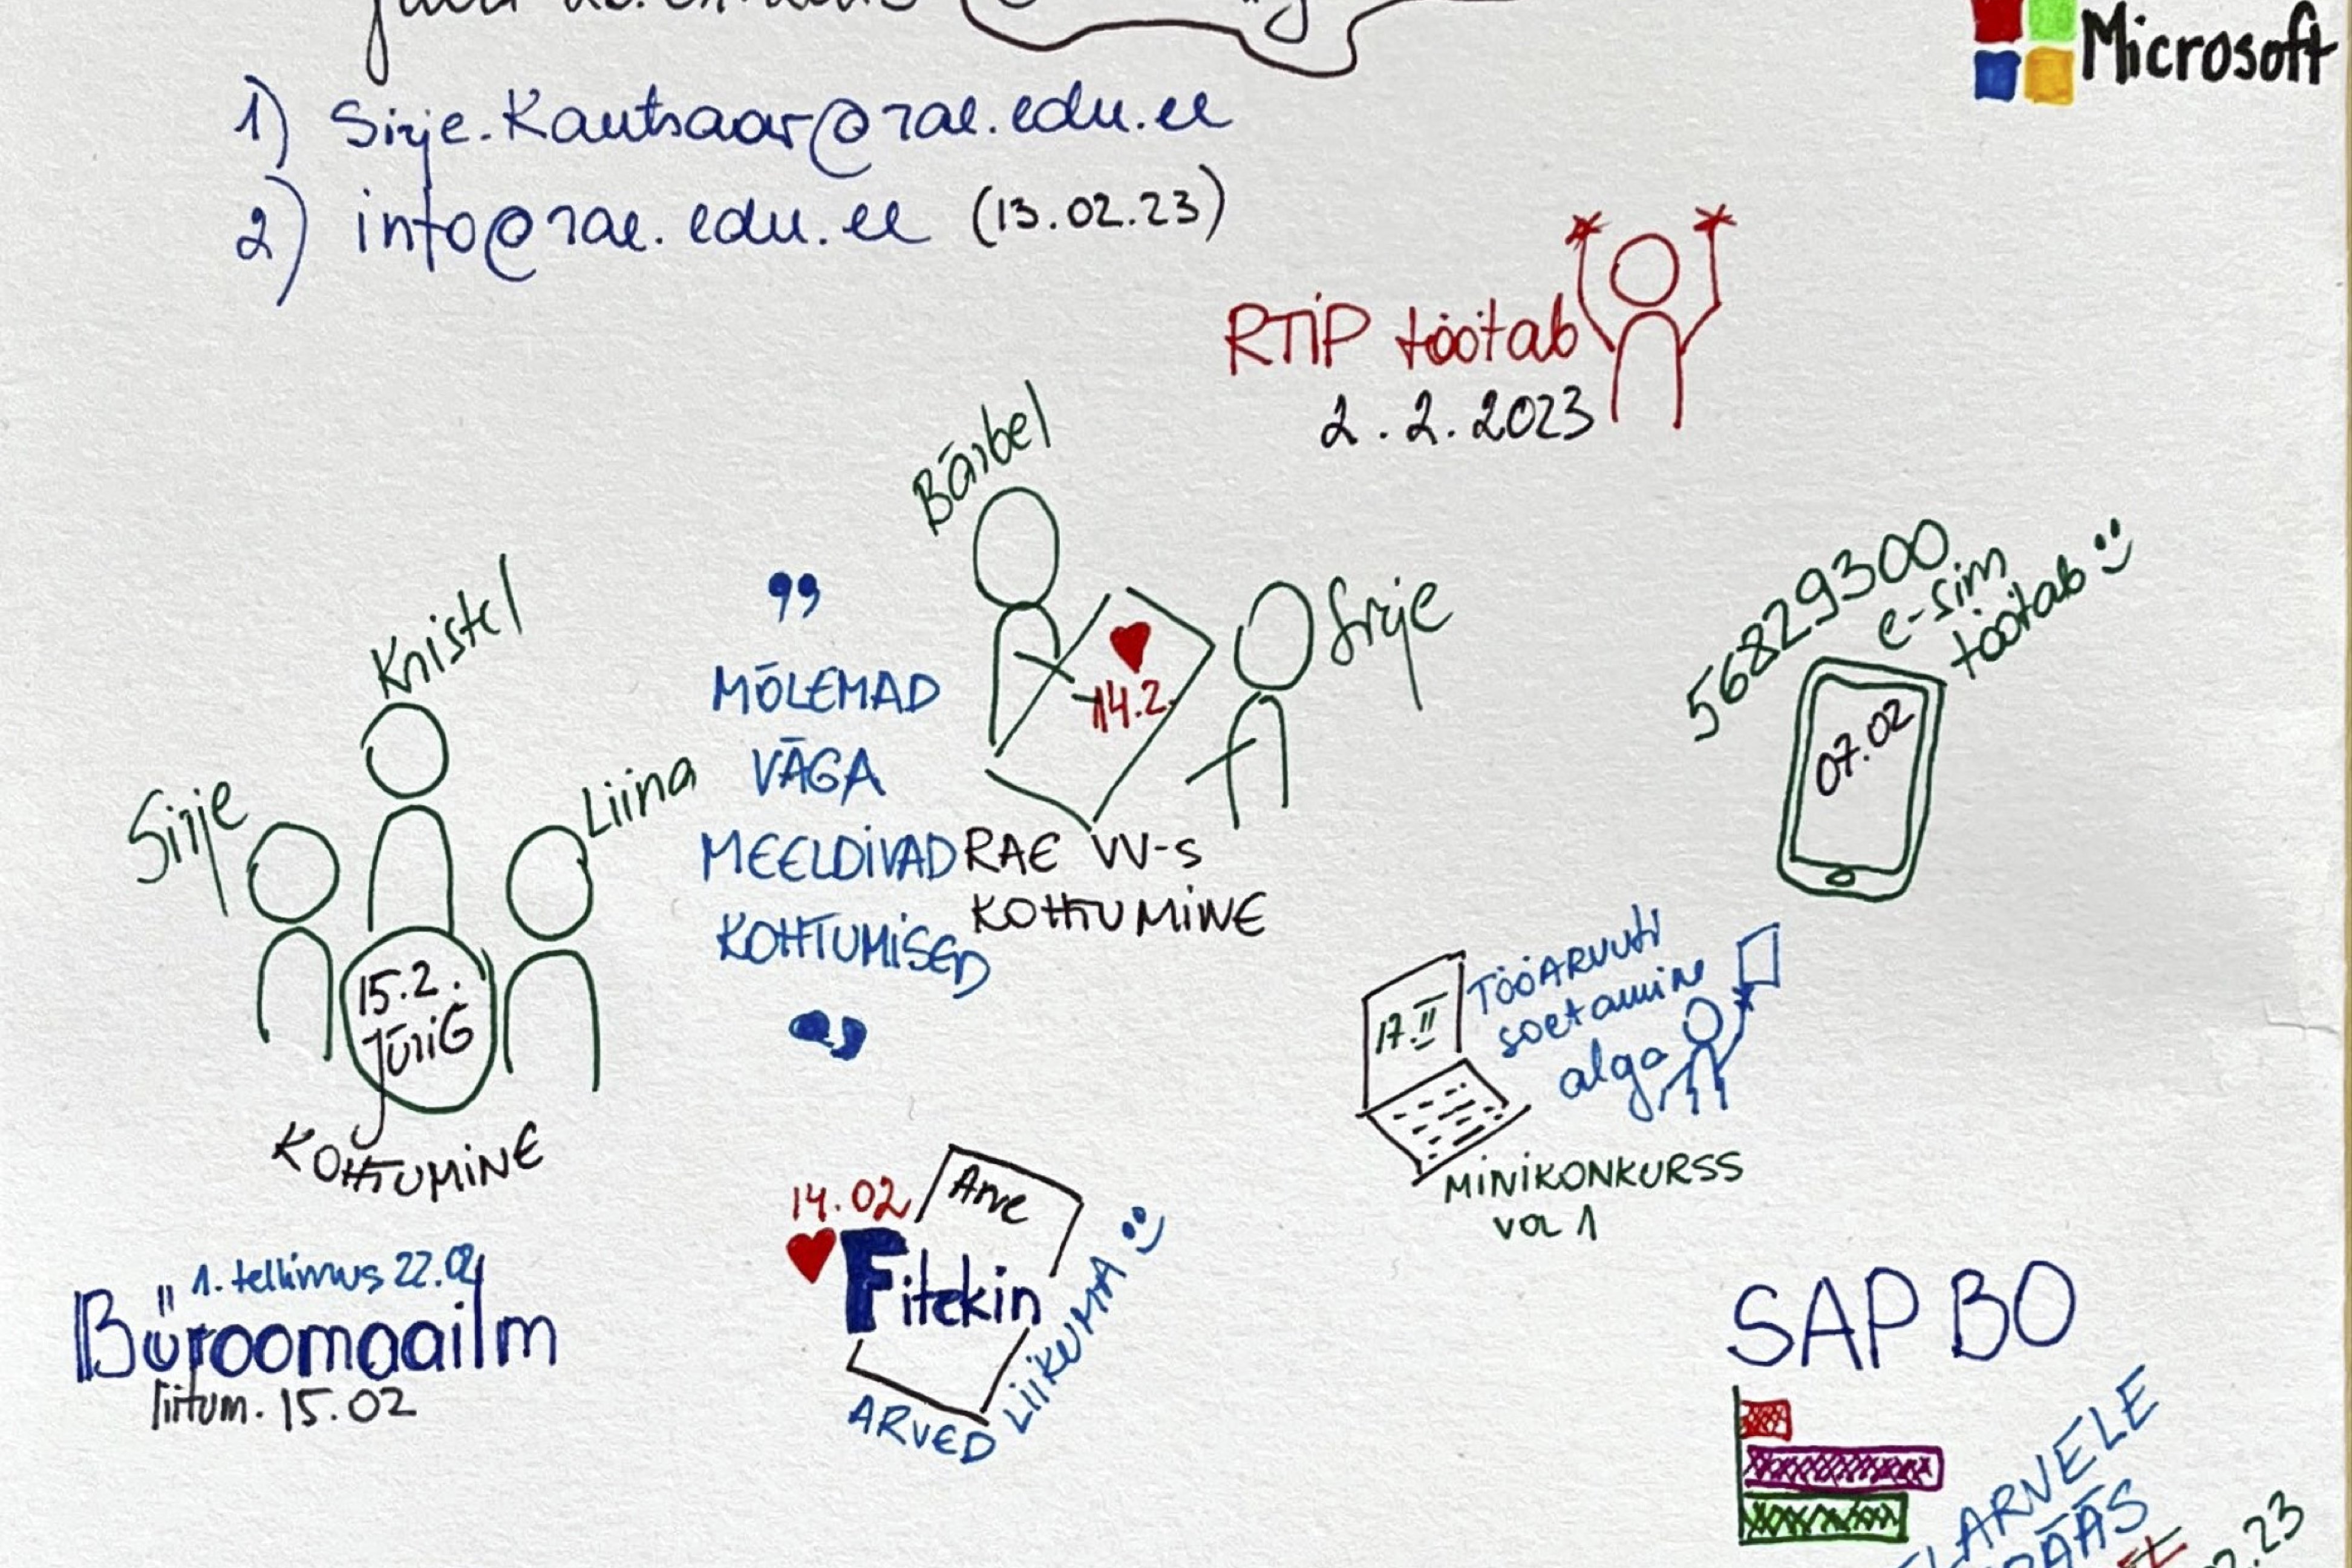 Microsoft
1) Sirje.Kautsaar@rae.edu.ee
2) info@rae.edu.ee (13.02.23)
RTIP töötab
2.2.2023
Bärbel
Sirje
14.2.
RAE VV-s
KOHTUMINE
56829300
e-sim
töötab
07.02
Kristel
Sirje
Liina
15.2.
JüriG
KOHTUMINE
"
MÕLEMAD
VÄGA
MEELDIVAD
KOHTUMISED
"
17.II
TÖÖARVUTI
soetamine
alga
MINIKONKURSS
VOL 1
1. tellimus 22.02
Büroomaailm
liitum. 15.02
14.02
Arve
Fitekin
ARVED LIIKUMA
SAP BO